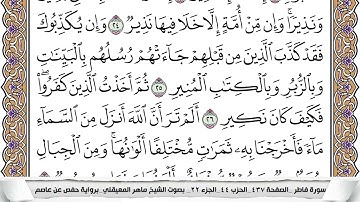 وَنَذِيرًا ۚ وَإِن مِّنْ أُمَّةٍ إِلَّا خَلَا فِيهَا نَذِيرٌ ٢٤ وَإِن يُكَذِّبُوكَ
فَقَدْ كَذَّبَ الَّذِينَ مِن قَبْلِهِمْ جَاءَتْهُمْ رُسُلُهُم بِالْبَيِّنَاتِ
وَبِالزُّبُرِ وَبِالْكِتَابِ الْمُنِيرِ ٢٥ ثُمَّ أَخَذْتُ الَّذِينَ كَفَرُوا ۖ
فَكَيْفَ كَانَ نَكِيرِ ٢٦ أَلَمْ تَرَ أَنَّ اللَّهَ أَنزَلَ مِنَ السَّمَاءِ
مَاءً فَأَخْرَجْنَا بِهِ ثَمَرَاتٍ مُّخْتَلِفًا أَلْوَانُهَا ۚ وَمِنَ الْجِبَالِ
سورة فاطر _الصفحة ٤٣٧ _الحزب ٤٤ _الجزء ٢٢ _ بصوت الشيخ ماهر المعيقلي _برواية حفص عن عاصم